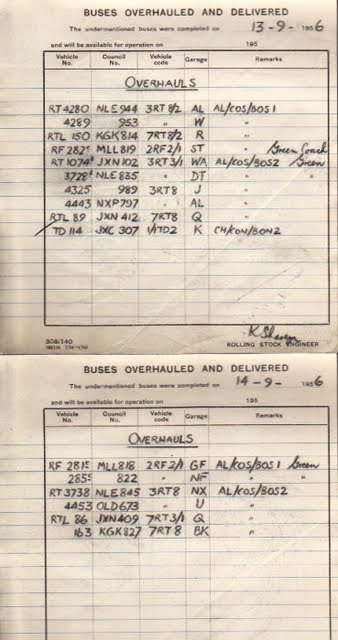 BUSES OVERHAULED AND DELIVERED
The undermentioned buses were completed on 13-9- 1956
and will be available for operation on 195
Vehicle No. Council No. Vehicle code Garage Remarks
OVERHAULS
RT 4280 NLE 944 3RT8/2 AL AL/COS/BOS1
4289 953 " W "
RTL 150 KGK 814 7RT8/2 R "
RF 282c MLL 819 2RF2/1 ST " Green Coach
RT 1074 JXN 102 3RT3/1 WA AL/COS/BOS2 Green
3728 NLE 835 " DT " "
4325 989 3RT8 J "
4443 NXP 797 " AL "
RTL 89 JXN 412 7RT8 Q "
TD 114 JXC 307 1/1TD2 K CH/CON/BON2
ROLLING STOCK ENGINEER
BUSES OVERHAULED AND DELIVERED
The undermentioned buses were completed on 14-9- 1956
and will be available for operation on 195
Vehicle No. Council No. Vehicle code Garage Remarks
OVERHAULS
RF 281c MLL 818 2RF2/1 GF AL/COS/BOS1 Green
285c 822 " NF " "
RT 3738 NLE 845 3RT8 NX AL/COS/BOS2
4453 OLD 673 " U "
RTL 86 JXN 409 7RT3/1 Q "
163 KGK 827 7RT8 BK "